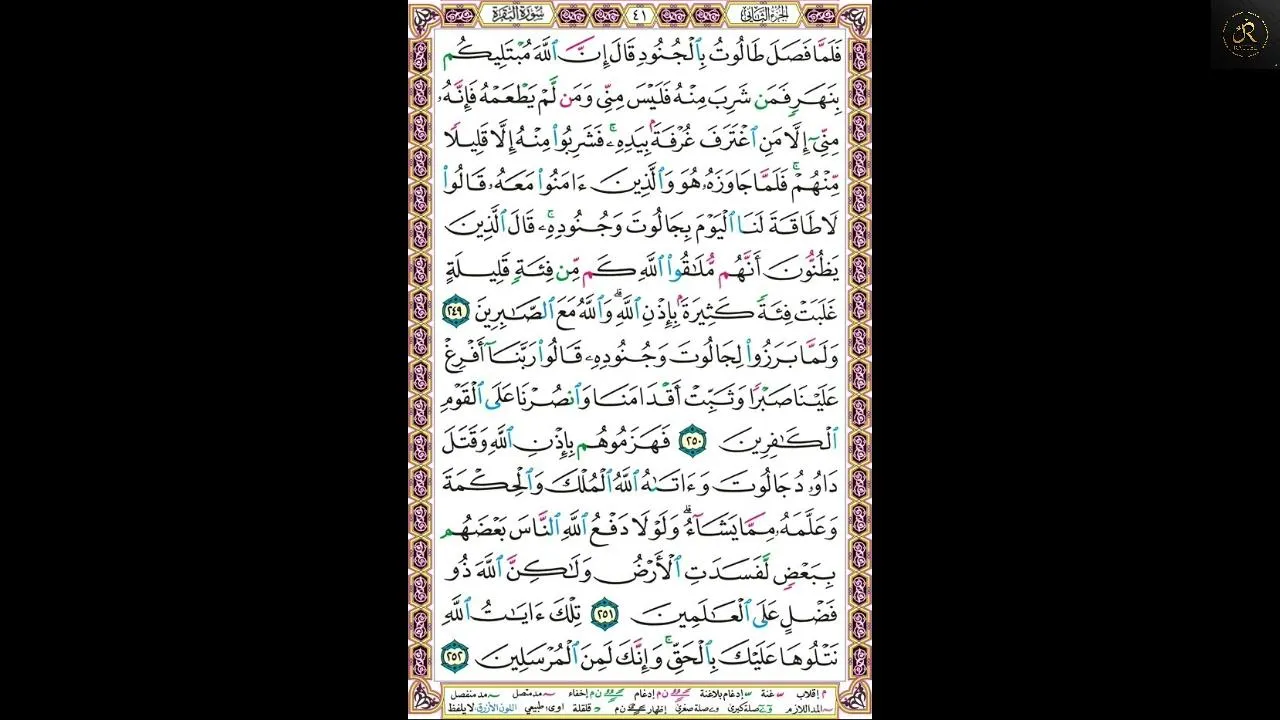 سُورَةُ البَقَرَةِ ٤١ الجُزْءُ الثَّانِي
فَلَمَّا فَصَلَ طَالُوتُ بِٱلْجُنُودِ قَالَ إِنَّ ٱللَّهَ مُبْتَلِيكُم
بِنَهَرٍ فَمَن شَرِبَ مِنْهُ فَلَيْسَ مِنِّي وَمَن لَّمْ يَطْعَمْهُ فَإِنَّهُۥ
مِنِّيٓ إِلَّا مَنِ ٱغْتَرَفَ غُرْفَةَۢ بِيَدِهِۦۚ فَشَرِبُوا۟ مِنْهُ إِلَّا قَلِيلًا
مِّنْهُمْۚ فَلَمَّا جَاوَزَهُۥ هُوَ وَٱلَّذِينَ ءَامَنُوا۟ مَعَهُۥ قَالُوا۟
لَا طَاقَةَ لَنَا ٱلْيَوْمَ بِجَالُوتَ وَجُنُودِهِۦۚ قَالَ ٱلَّذِينَ
يَظُنُّونَ أَنَّهُم مُّلَٰقُوا۟ ٱللَّهِ كَم مِّن فِئَةٍ قَلِيلَةٍ
غَلَبَتْ فِئَةً كَثِيرَةَۢ بِإِذْنِ ٱللَّهِۗ وَٱللَّهُ مَعَ ٱلصَّٰبِرِينَ ٢٤٩
وَلَمَّا بَرَزُوا۟ لِجَالُوتَ وَجُنُودِهِۦ قَالُوا۟ رَبَّنَآ أَفْرِغْ
عَلَيْنَا صَبْرًا وَثَبِّتْ أَقْدَامَنَا وَٱنصُرْنَا عَلَى ٱلْقَوْمِ
ٱلْكَٰفِرِينَ ٢٥٠ فَهَزَمُوهُم بِإِذْنِ ٱللَّهِ وَقَتَلَ
دَاوُۥدُ جَالُوتَ وَءَاتَىٰهُ ٱللَّهُ ٱلْمُلْكَ وَٱلْحِكْمَةَ
وَعَلَّمَهُۥ مِمَّا يَشَآءُۗ وَلَوْلَا دَفْعُ ٱللَّهِ ٱلنَّاسَ بَعْضَهُم
بِبَعْضٍ لَّفَسَدَتِ ٱلْأَرْضُ وَلَٰكِنَّ ٱللَّهَ ذُو
فَضْلٍ عَلَى ٱلْعَٰلَمِينَ ٢٥١ تِلْكَ ءَايَٰتُ ٱللَّهِ
نَتْلُوهَا عَلَيْكَ بِٱلْحَقِّۚ وَإِنَّكَ لَمِنَ ٱلْمُرْسَلِينَ ٢٥٢
م إقلاب غنة إدغام بلاغنة ن م إدغام ن م إخفاء مد متصل مد منفصل
المد اللازم صلة كبرى صلة صغرى إظهار ن م قلقلة اوى طبيعي اللون الأزرق لا يلفظ